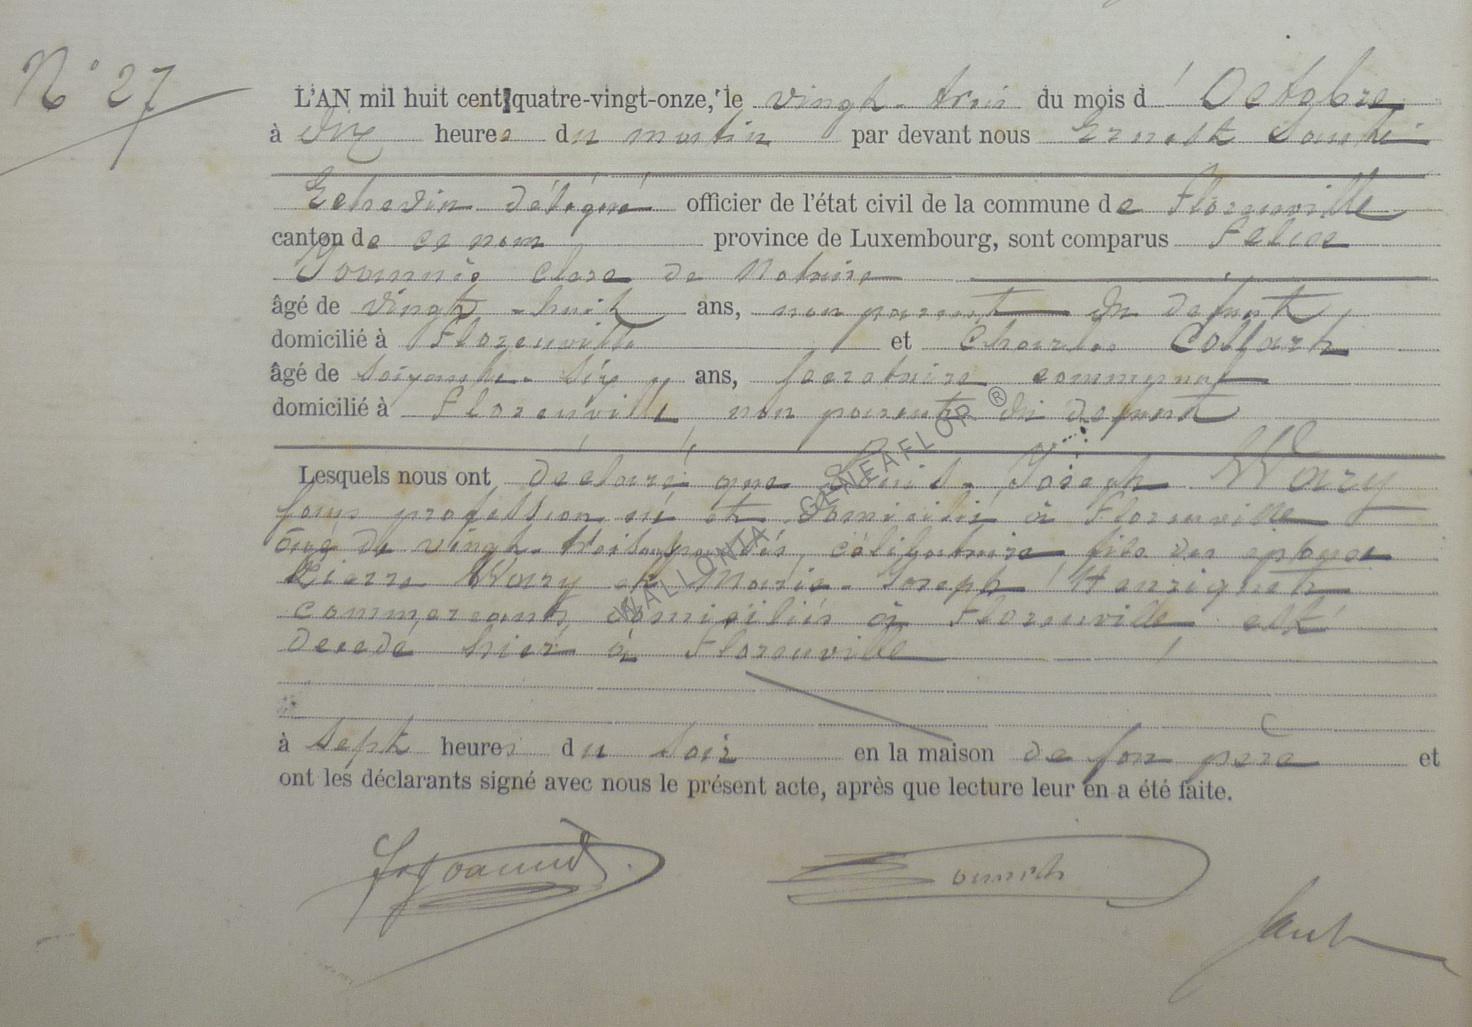 N° 27
L'AN mil huit cent quatre-vingt-onze, le vingt-trois du mois d'Octobre
à dix heures du matin par devant nous Ernest
Echevin délégué officier de l'état civil de la commune de Florenville
canton de ce nom province de Luxembourg, sont comparus Felice
Joannie clerc de Notaire
âgé de vingt-huit ans, non parent du défunt
domicilié à Florenville et Charles
âgé de soixante-six ans, secretaire communal
domicilié à Florenville non parent du defunt
Lesquels nous ont déclaré que Louis-Joseph Wary
sans profession né et domicilié à Florenville
âgé de vingt-trois célibataire fils des époux
Pierre Wary et Marie-Joseph Henriquet
commercants domiciliés à Florenville est
decedé hier à Florenville
à sept heures du soir en la maison de son père et
ont les déclarants signé avec nous le présent acte, après que lecture leur en a été faite.
WALLONIA GENEAFLOR ®